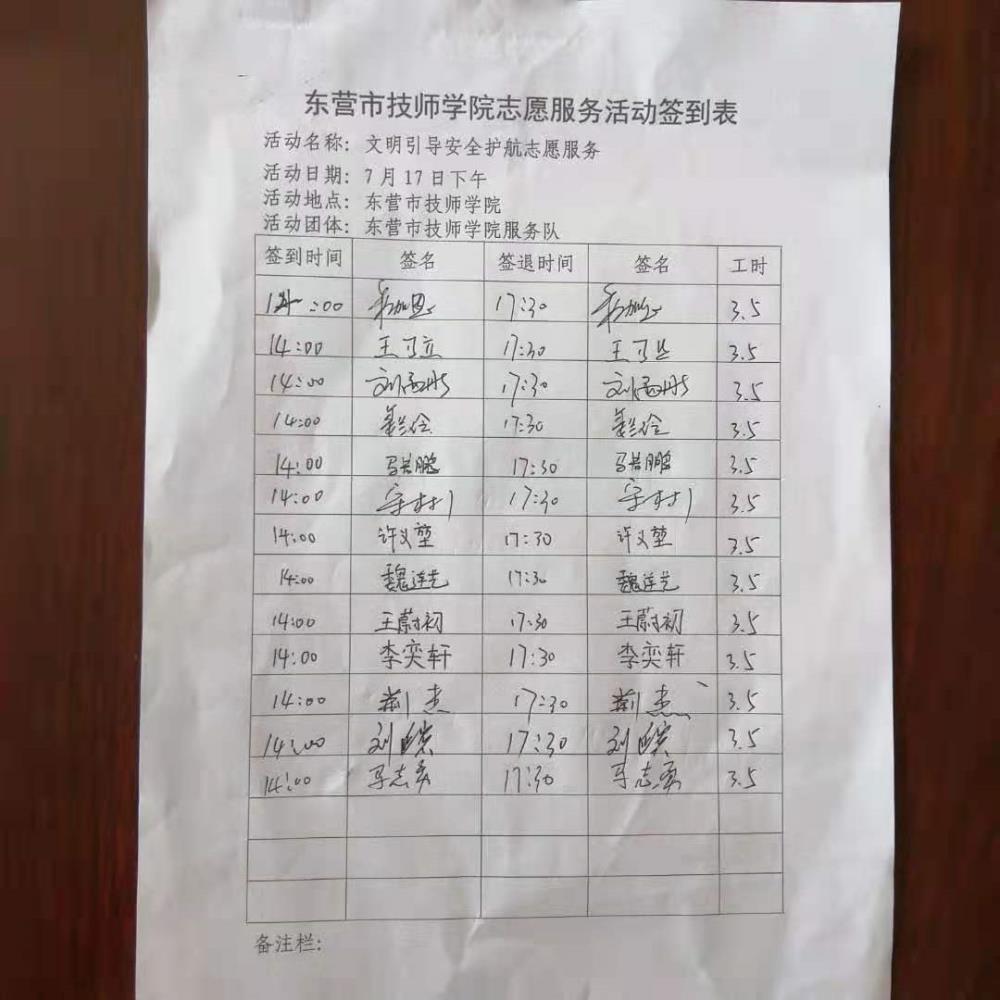 东营市技师学院志愿服务活动签到表
活动名称：文明引导安全护航志愿服务
活动日期：7月17日下午
活动地点：东营市技师学院
活动团体：东营市技师学院服务队
签到时间 签名 签退时间 签名 工时
14:00 17:30 3.5
14:00 王可立 17:30 王可立 3.5
14:00 刘孟彤 17:30 刘孟彤 3.5
14:00 17:30 3.5
14:00 马兴鹏 17:30 马兴鹏 3.5
14:00 17:30 3.5
14:00 许义堃 17:30 许义堃 3.5
14:00 魏莲芝 17:30 魏莲芝 3.5
14:00 王蔚初 17:30 王蔚初 3.5
14:00 李奕轩 17:30 李奕轩 3.5
14:00 荆杰 17:30 荆杰 3.5
14:00 刘 17:30 刘 3.5
14:00 马志勇 17:30 马志勇 3.5
备注栏：